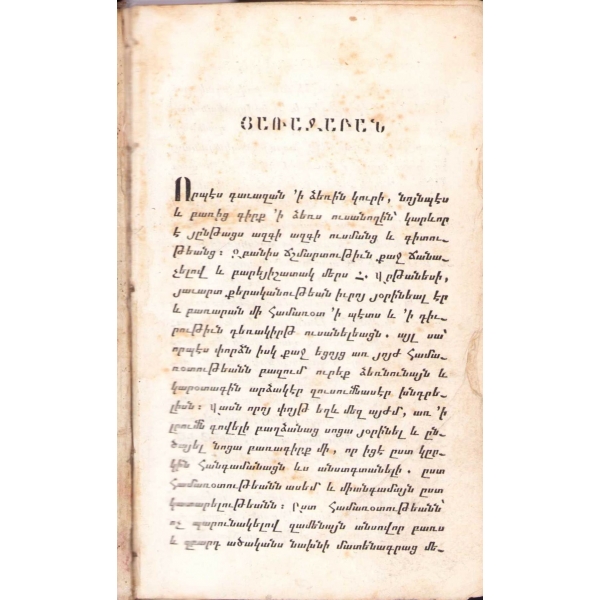 ՅԱՌԱՋԱԲԱՆ
Որպէս գաւազան ՚ի ձեռին կուրի, նոյնպէս
և բառից գիրք ՚ի ձեռս ուսանողին՝ կարևոր
է յընթացս ազգի ազգի ուսմանց և գիտու-
թեանց։ Զբանիս ճշմարտութիւն քաջ ճանա-
չելով և բարեյիշատակ մերս Հ. Մըթանեսի,
յաւարտ քերականութեան իւրոյ յօրինեալ էր
և բառարան մի Համառօտ ՚ի պէտս և ՚ի դիւ-
րութիւն դեռակիրթ ուսանելեացն. այլ սա՝
որպէս փորձն իսկ քաջ եցոյց առ յոյժ Համա-
ռօտութեանն բազում ուրեք ձեռնունայն և
կարօտագին արձակէր զուսումնասէր խնդրե-
լիսն։ Վասն որոյ փոյթ եղև մեզ այժմ, առ ՚ի
լրումն գովելի բաղձանաց սոցա յօրինել և ըն-
ծայել նոցա բառագիրք մի, որ իցէ ըստ կրը-
կին Հանգամանացն ևս անստգտանելի. ըստ
Համառօտութեանն ասեմ և միանգամայն ըստ
կատարելութեանն։ Ըստ Համառօտութեանն՝
ոչ պարունակելով զամենայն անսովոր բառս
և զբարդ ածականս նախնի մատենագրաց մե-